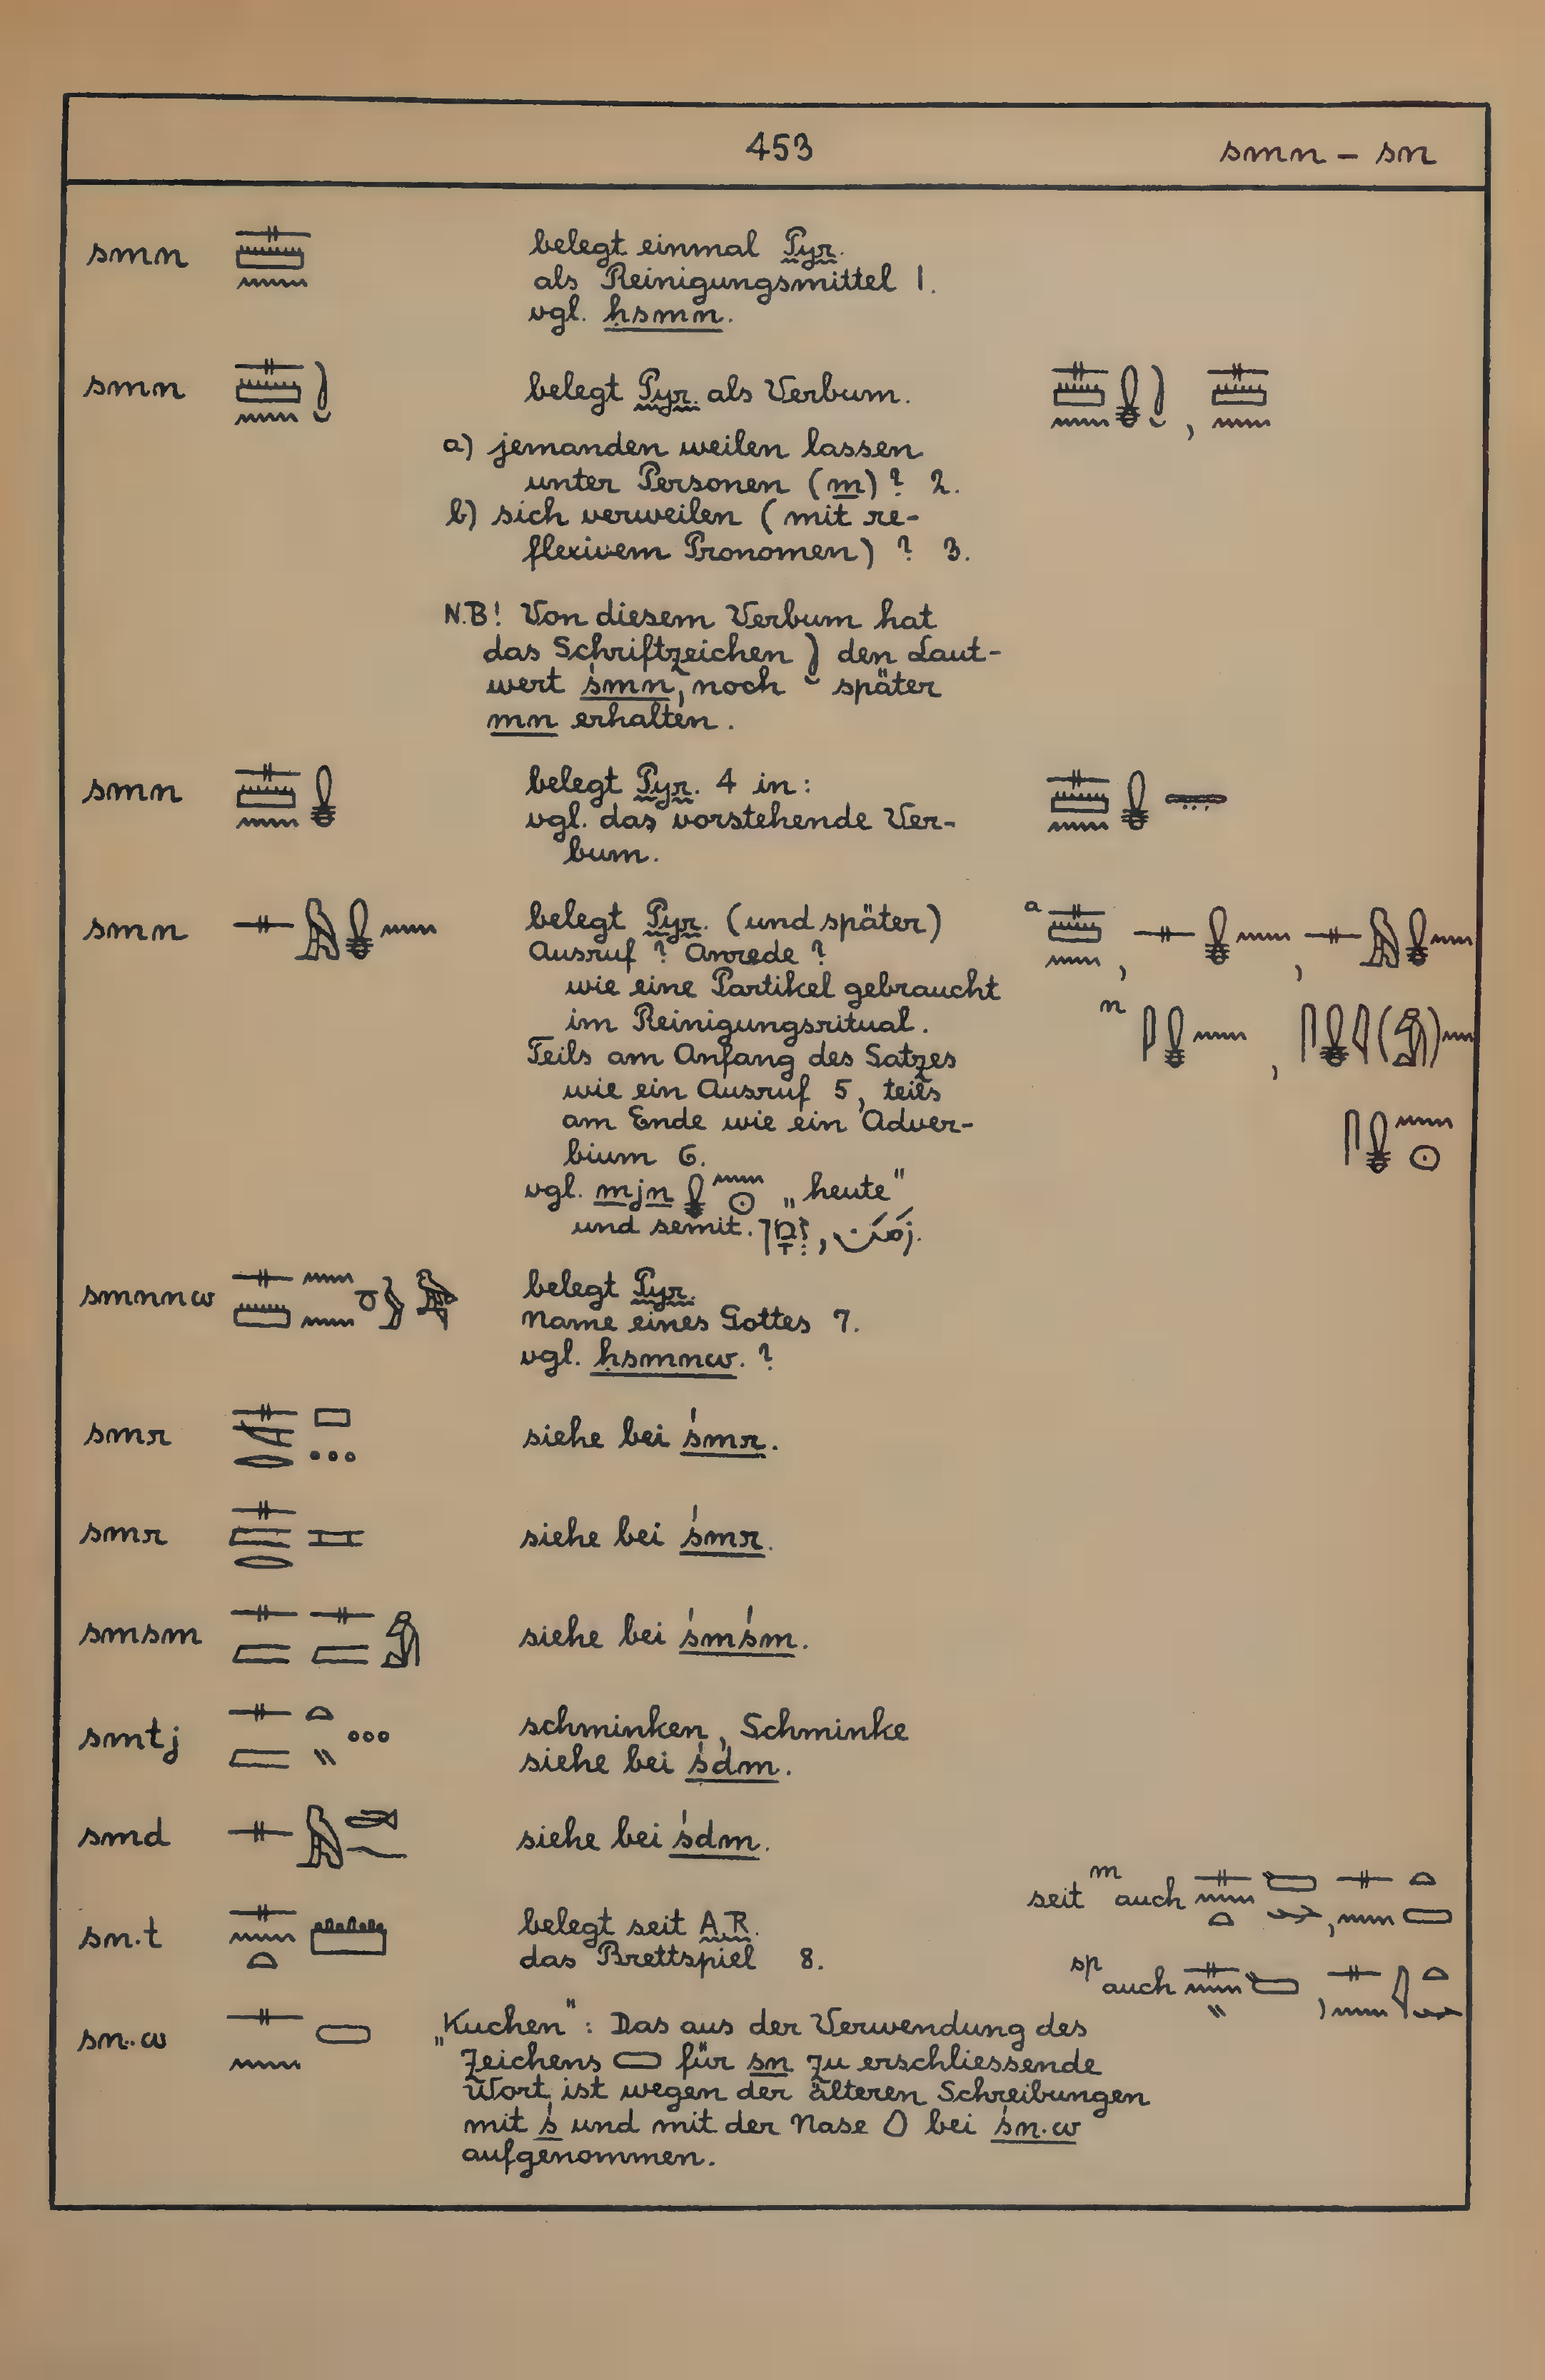 453 smn – sn
smn belegt einmal Pyr.
als Reinigungsmittel 1.
vgl. ḥsmn.
smn belegt Pyr. als Verbum.
a) jemanden weilen lassen
unter Personen (m) ? 2.
b) sich verweilen (mit re-
flexivem Pronomen) ? 3.
N.B! Von diesem Verbum hat
das Schriftzeichen den Laut-
wert śmn, noch später
mn erhalten.
smn belegt Pyr. 4 in:
vgl. das vorstehende Ver-
bum.
smn belegt Pyr. (und später) a
Ausruf ? Anrede ?
wie eine Partikel gebraucht
im Reinigungsritual. n
Teils am Anfang des Satzes
wie ein Ausruf 5, teils
am Ende wie ein Adver-
bium 6.
vgl. mjn „heute"
und semit.
smnnw belegt Pyr.
Name eines Gottes 7.
vgl. ḥsmnw. ?
smr siehe bei śmr.
smr siehe bei śmr.
smsm siehe bei śmśm.
smtj schminken, Schminke
siehe bei śdm.
smd siehe bei śdm.
sn.t belegt seit A.R. seit m auch
das Brettspiel 8. sp auch
sn..w „Kuchen": Das aus der Verwendung des
Zeichens für sn zu erschliessende
Wort ist wegen der älteren Schreibungen
mit ś und mit der Nase bei śn.w
aufgenommen.